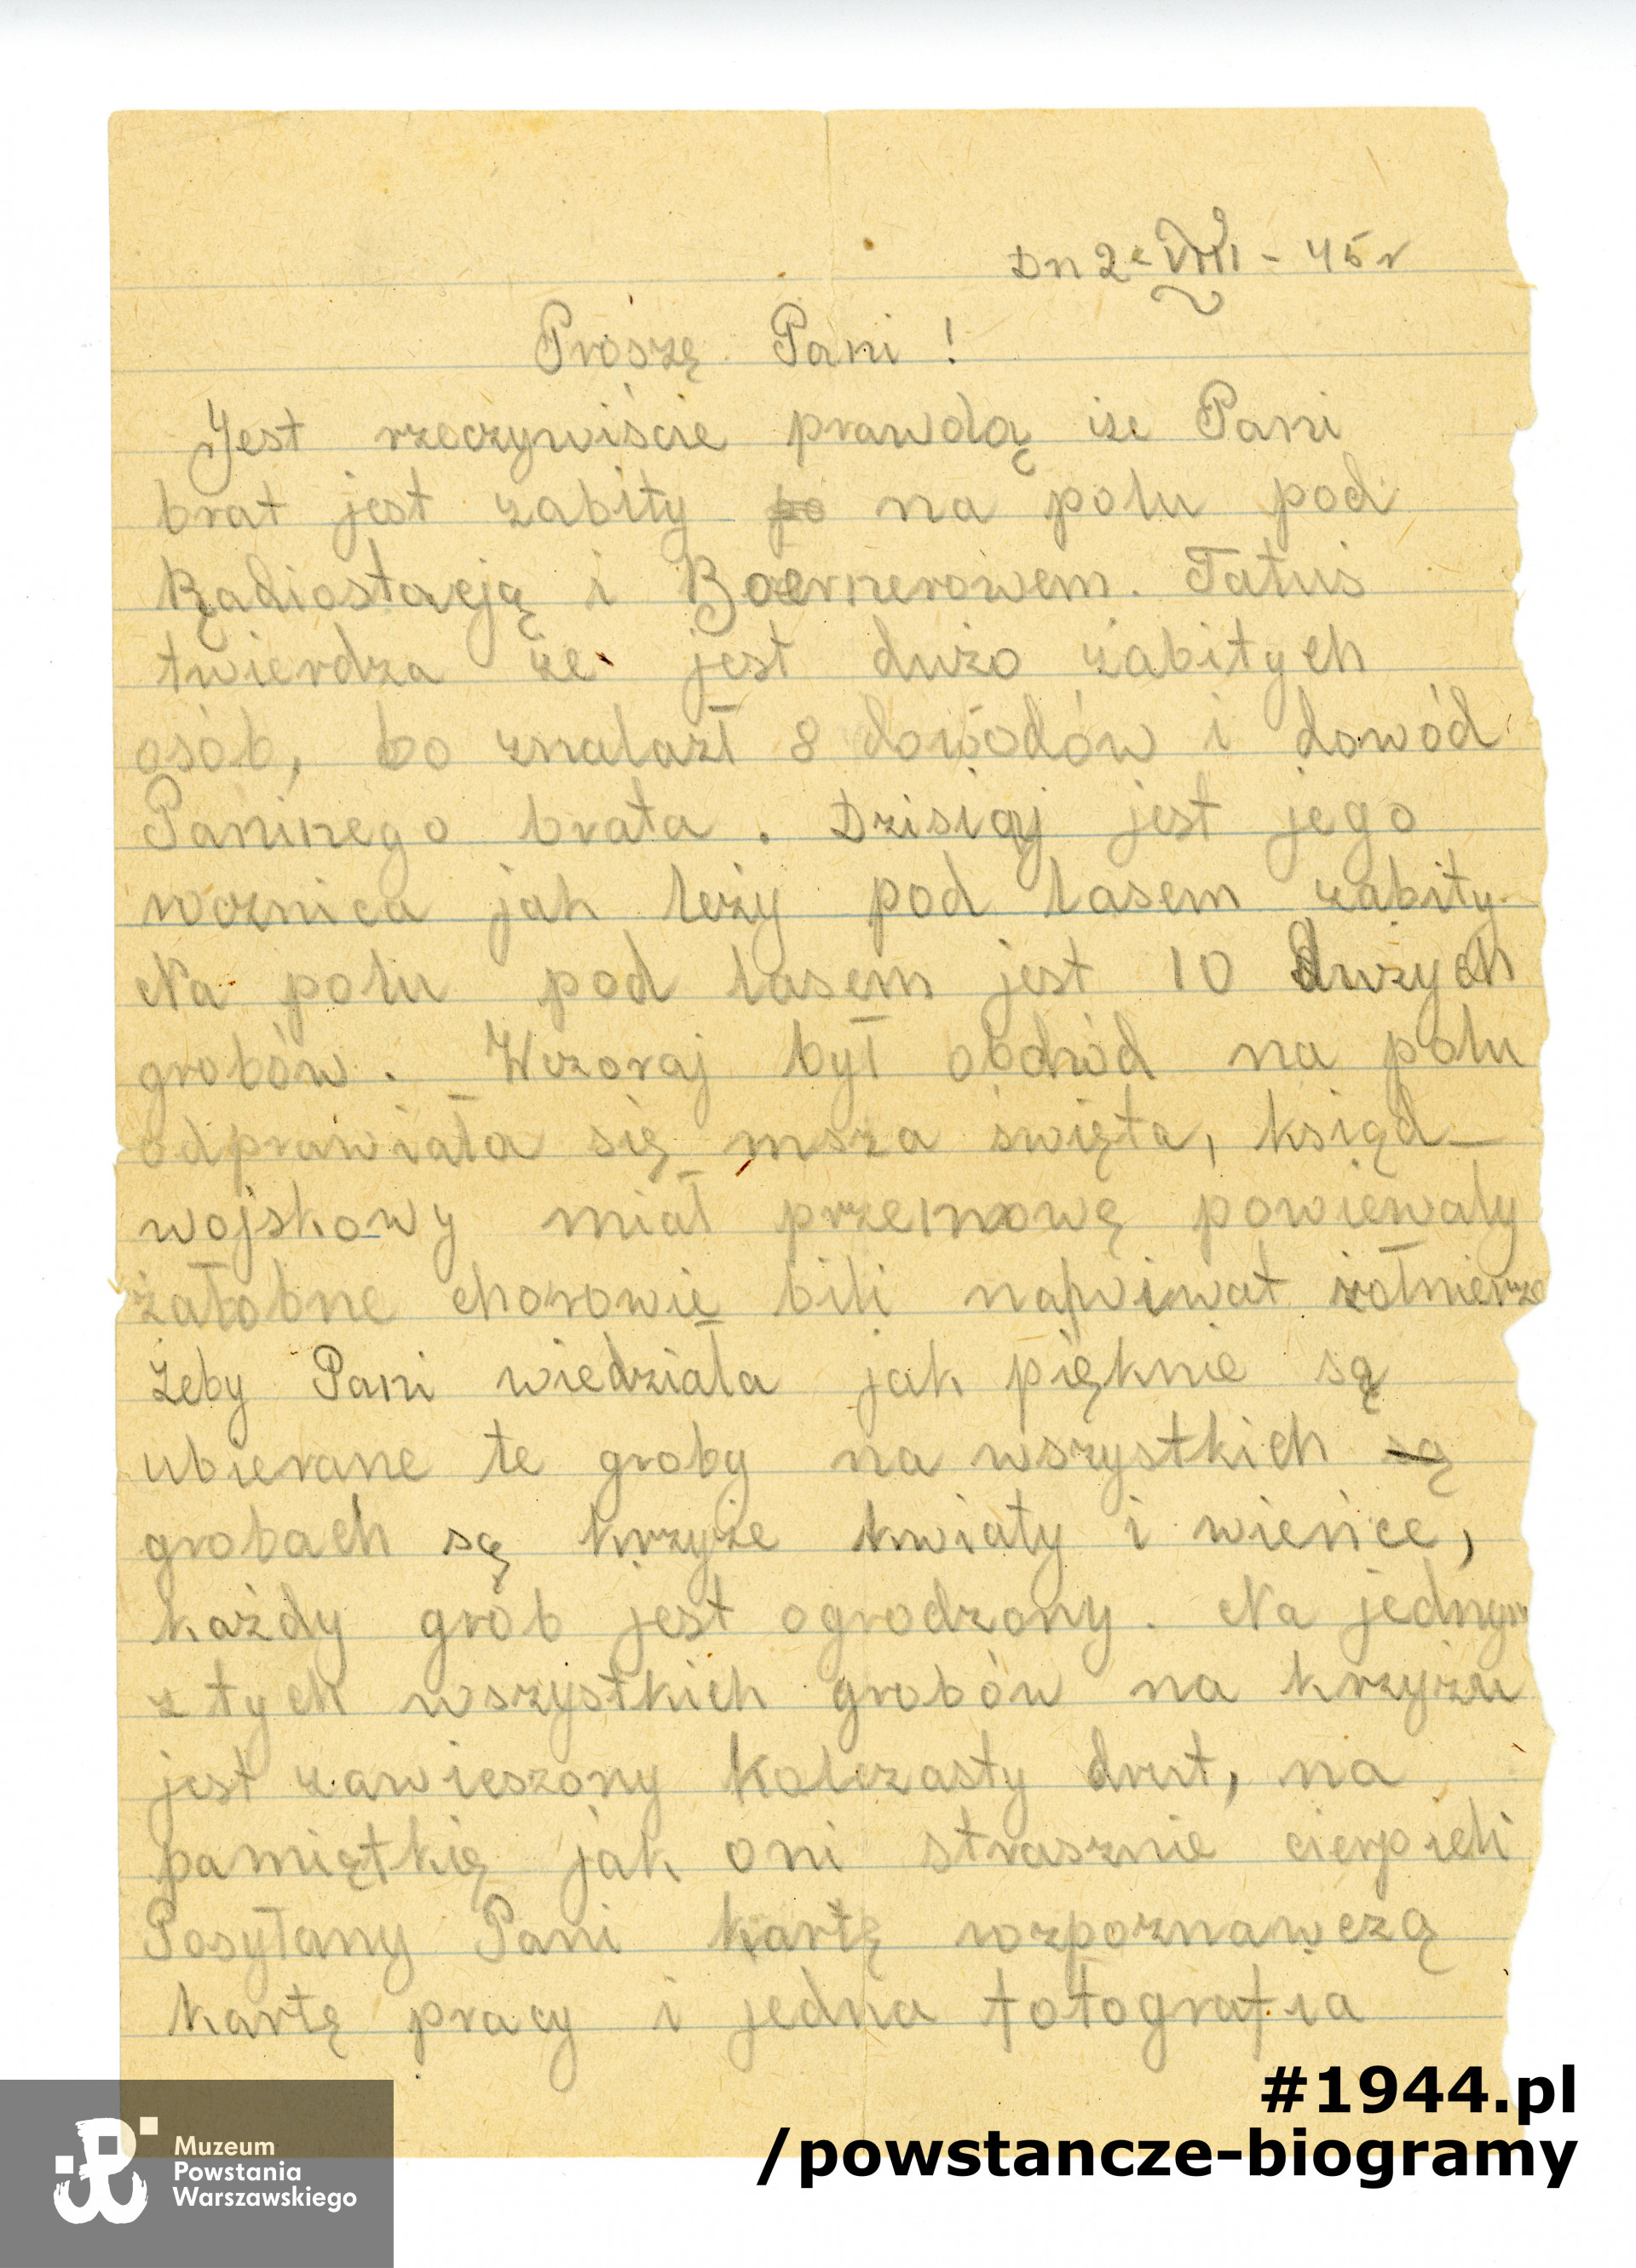 Dn 2-VIII-45r
Proszę Pani!
Jest rzeczywiście prawdą iże Pani
brat jest zabity po na polu pod
Radiostacją i Boernerowem. Tatuś
twierdza że jest dużo zabitych
osób, bo znalazł 8 dowodów i dowód
Paninego brata. Dzisiaj jest jego
rocznica jak leży pod lasem zabity.
Na polu pod lasem jest 10 dużych
grobów. Wczoraj był obchód na polu
odprawiała się msza święta, ksiąd_
wojskowy miał przemowę powiewały
żałobne chorowie bili na wiwat żołnierze
Żeby Pani wiedziała jak pięknie są
ubierane te groby na wszystkich są
grobach są krzyże kwiaty i wieńce,
każdy grób jest ogrodzony. Na jednym
z tych wszystkich grobów na krzyżu
jest zawieszony kolczasty drut, na
pamiętkię jak oni strasznie cierpieli
Posyłany Pani kartę rozpoznawczą
kartę pracy i jedna fotografia
#1944.pl
/powstancze-biogramy
Muzeum
Powstania
Warszawskiego